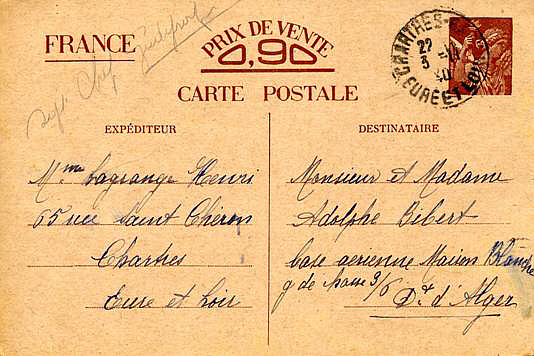 FRANCE
PRIX DE VENTE
0,90
CARTE POSTALE
CHARTRES
EURE ET LOIR
EXPÉDITEUR
Mme Lagrange Henri
65 rue Saint Chéron
Chartres
Eure et Loir
DESTINATAIRE
Monsieur et Madame
Adolphe Bibert
base aerienne Maison Blanche
g de 3/6 Dt d'Alger